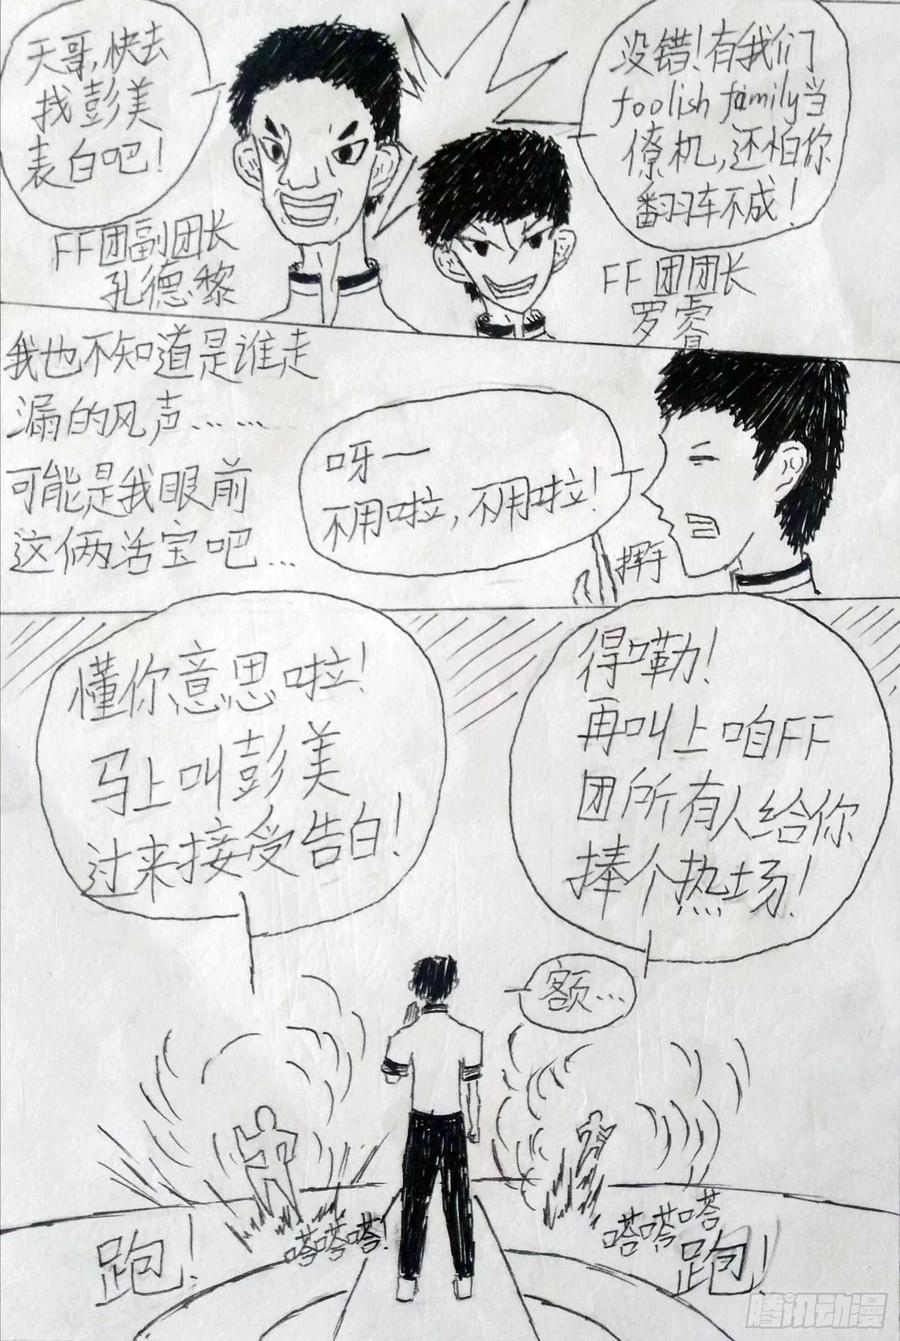 天哥,快去
找彭美
表白吧!
没错!有我们
foolish family当
僚机,还怕你
翻车不成!
FF团副团长
孔德黎
FF团团长
罗睿
我也不知道是谁走
漏的风声……
可能是我眼前
这俩活宝吧…
呀一
不用啦,不用啦!
挥手
懂你意思啦!
马上叫彭美
过来接受告白!
得嘞!
再叫上咱FF
团所有人给你
捧个热场!
额…
跑!
嗒嗒嗒!
嗒嗒嗒
跑!
腾讯动漫